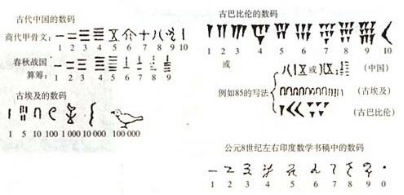 古代中国的数码
商代甲骨文:
1 2 3 4 5 6 7 8 9 10
春秋战国
算筹:
1 2 3 4 5 6 7 8 9
古埃及的数码
1 5 10 100 1 000 10 000 100 000
古巴比伦的数码
1 2 3 4 5 6 7 8 9 10
或
例如85的写法
或
(中国)
(古埃及)
(古巴比伦)
公元8世纪左右印度数学书稿中的数码
1 2 3 4 5 6 7 8 9 0